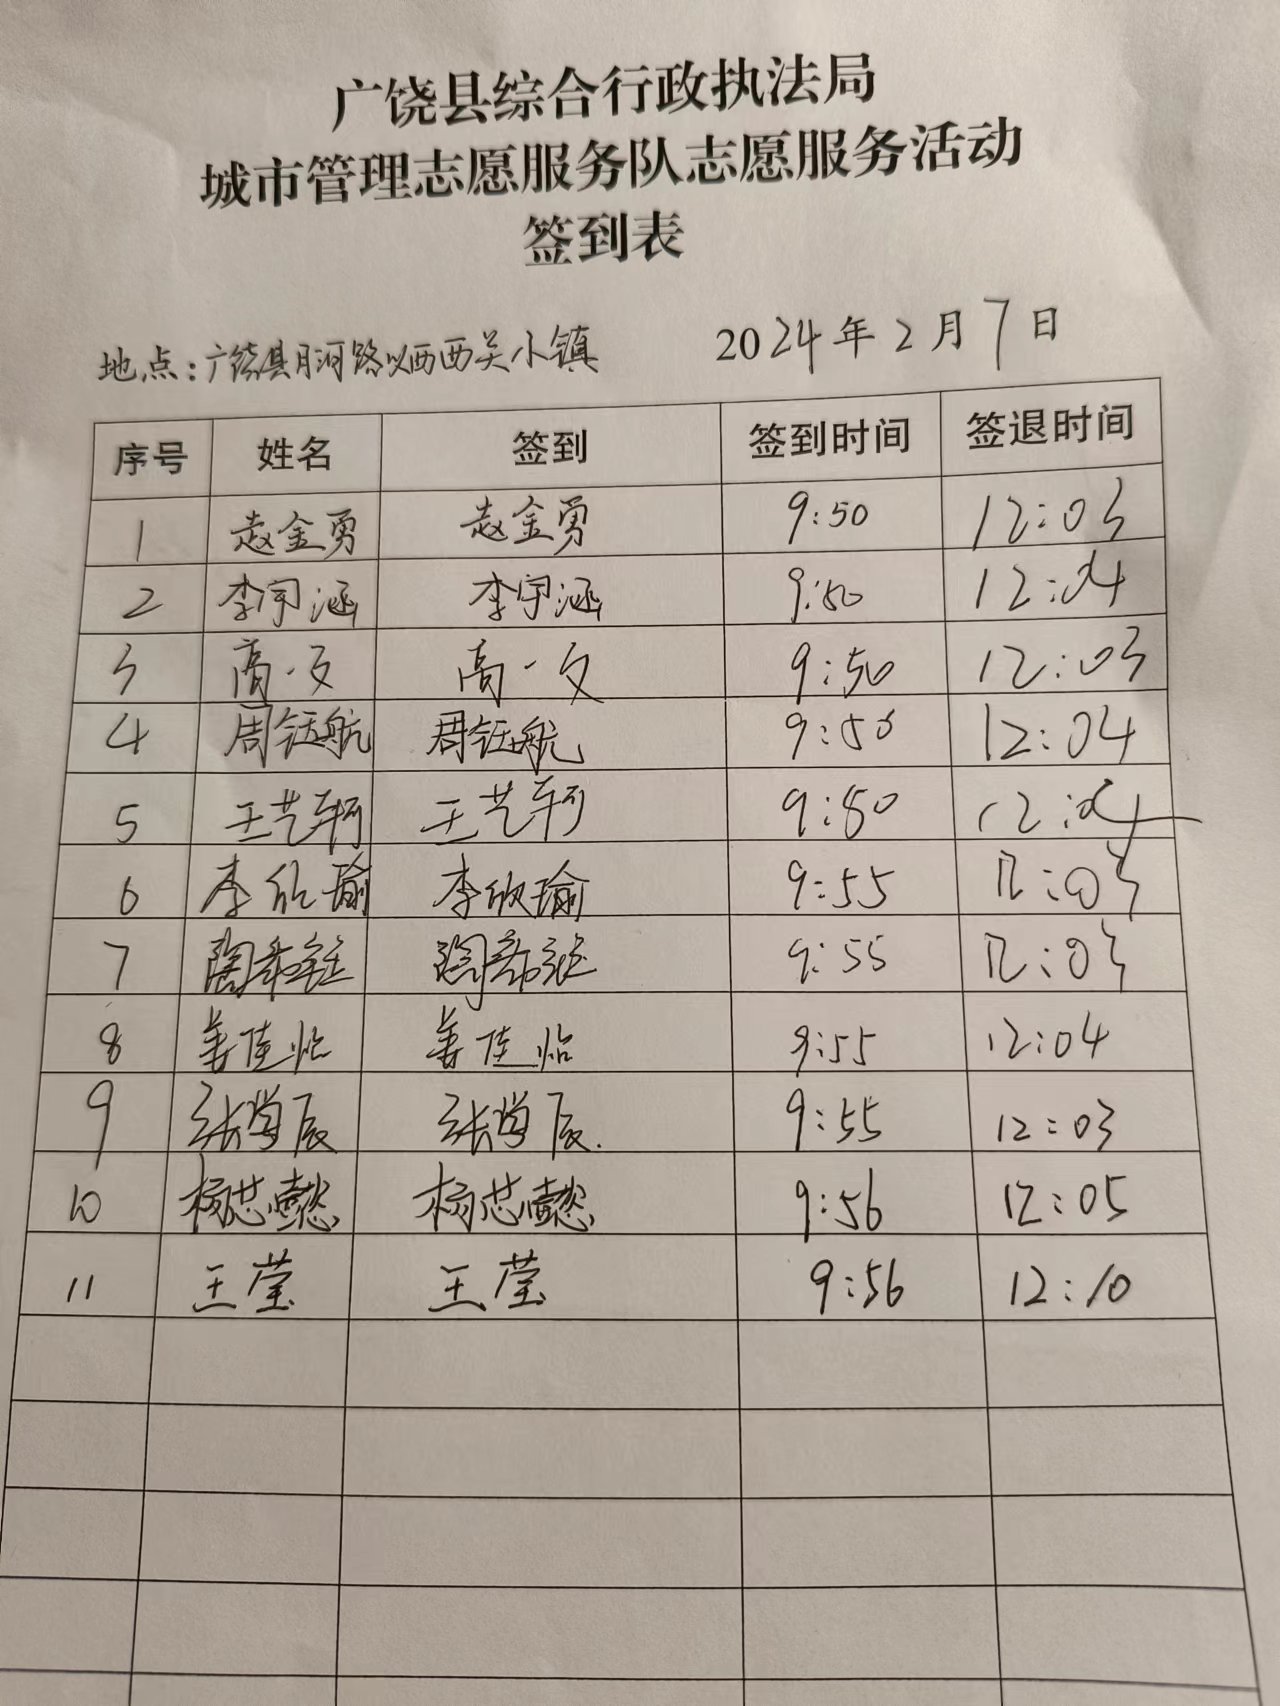 广饶县综合行政执法局
城市管理志愿服务队志愿服务活动
签到表
地点：广饶县月河路以西西关小镇 2024年2月7日
序号 姓名 签到 签到时间 签退时间
1 赵金勇 赵金勇 9:50 12:03
2 李宇涵 李宇涵 9:50 12:04
3 高一文 高一文 9:50 12:03
4 周钰航 周钰航 9:50 12:04
5 王艺轲 王艺轲 9:50 12:04
6 李欣瑜 李欣瑜 9:55 12:03
7 9:55 12:03
8 姜佳怡 姜佳怡 9:55 12:04
9 张学辰 张学辰 9:55 12:03
10 杨芯懿 杨芯懿 9:56 12:05
11 王莹 王莹 9:56 12:10